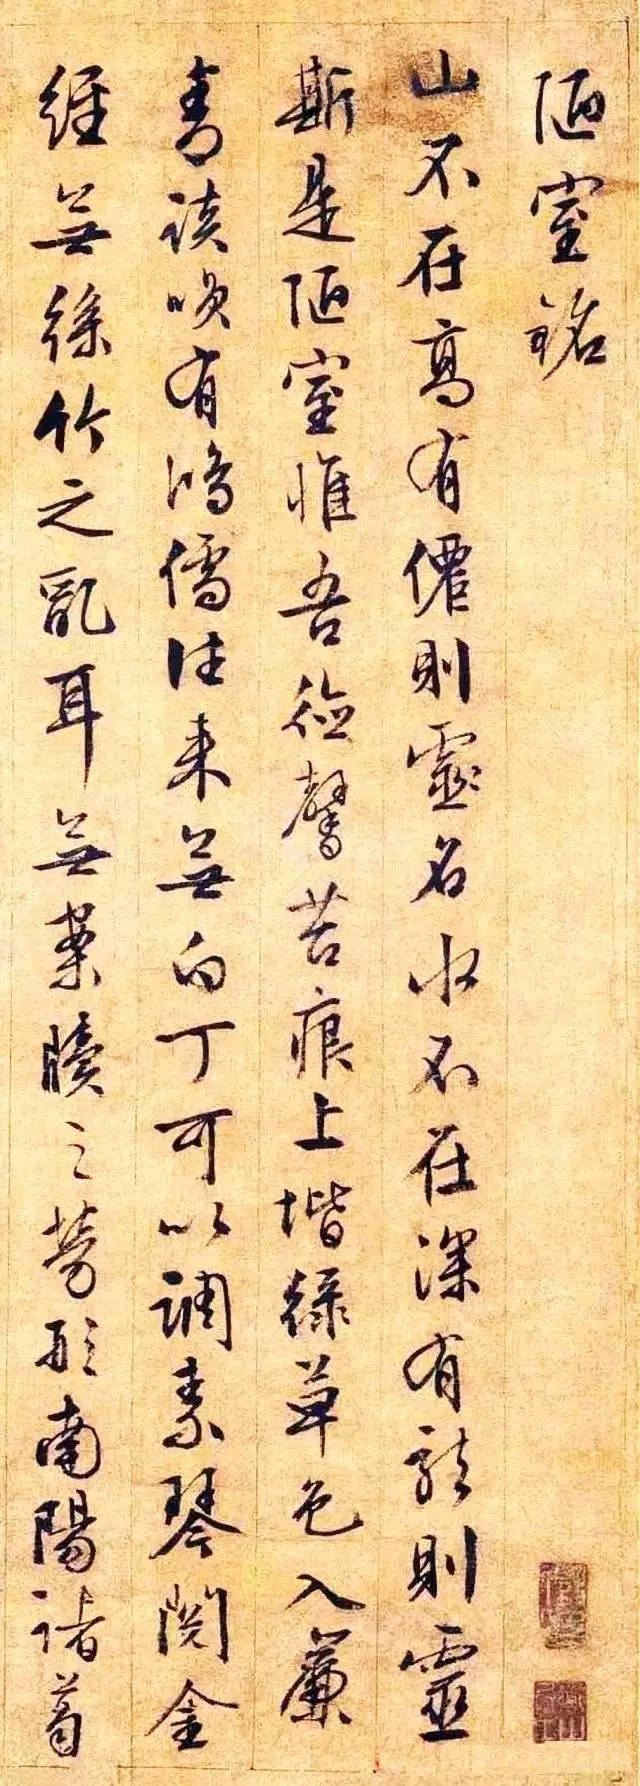 陋室銘
山不在高有僊則靈名水不在深有龍則靈
斯是陋室惟吾德馨苔痕上堦緑草色入簾
青談咲有鴻儒往来無白丁可以調素琴閱金
經無絲竹之亂耳無案牘之勞形南陽諸葛